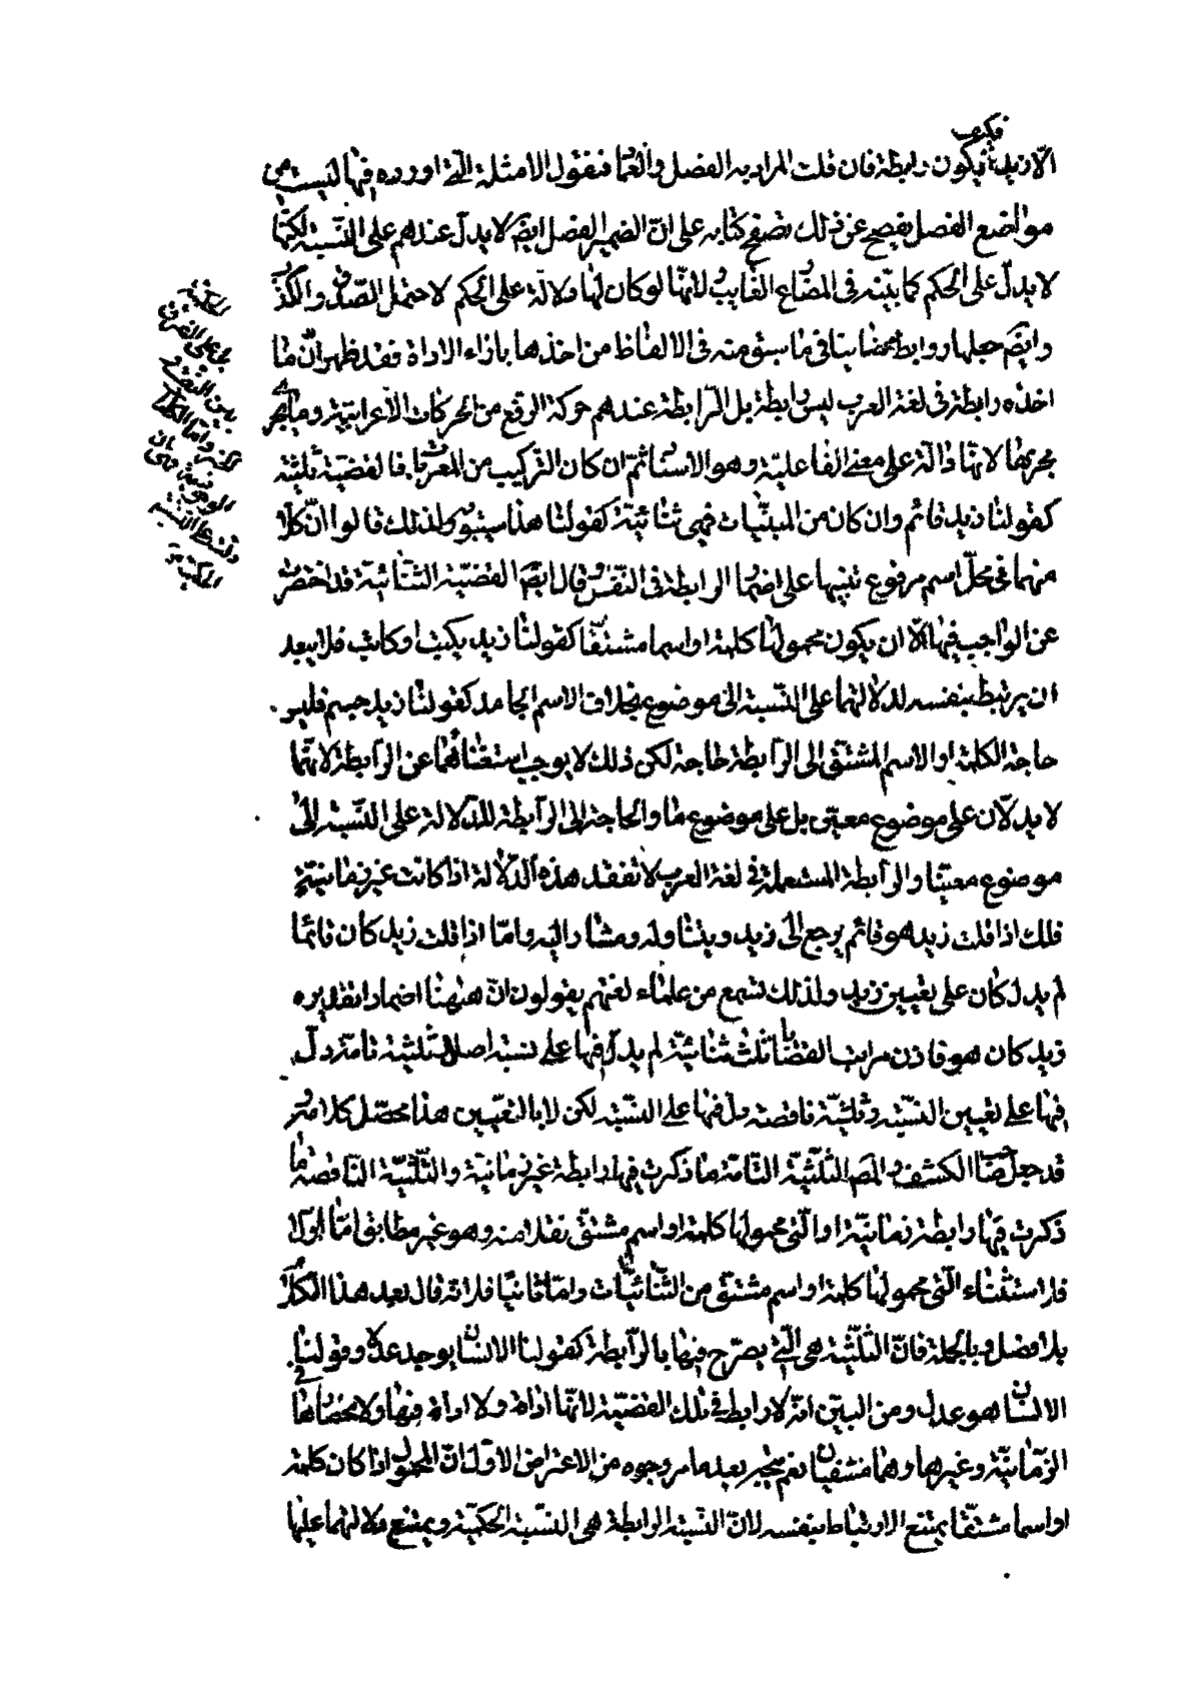 فكيف
الا زيد فيكون رابطة فان قلت المراد به الفصل والعماد فنقول الامثلة التى اورده فيها ليست من
مواضع الفصل يفصح عن ذلك تصفح كتابه على ان الضمير الفصل ايضا لا يدل عندهم على النسبة لكنها
لا يدل على الحكم كما بينه فى المضارع الغايب لانها لو كان لها دلالة على الحكم لاحتمل الصدق والكذب
وايضا جعلها روابط محضا ينافى ما سبق منه فى الالفاظ من اخذها بازاء الاداة فقد ظهر ان ما
اخذه رابطة فى لغة العرب ليس رابطة بل الرابطة عندهم حركة الرفع من الحركات الاعرابية وما يجرى
مجريها لانها دالة على معنى الفاعلية وهو الاسناد ثم ان كان التركيب من المعربات فالقضية ثلثية
كقولنا زيد قائم وان كان من المبنيات فهى ثنائية كقولنا هذا سيبويه ولذلك قالوا ان كلا
منهما فى محل اسم مرفوع تنبيها على اضمار الرابطة فى النفس قال ايضا القضية الثنائية قد اختصرت
عن الواجب فيها الا ان يكون محمولها كلمة او اسما مشتقا كقولنا زيد يكتب او كاتب فلا يبعد
ان يرتبط بنفسه لدلالتهما على النسبة الى موضوع بخلاف الاسم الجامد كقولنا زيد جسم فليس
حاجة الكلمة او الاسم المشتق الى الرابطة حاجة لكن ذلك لا يوجب استغنائهما عن الرابطة لانهما
لا يدلان على موضوع معين بل على موضوع ما والحاجة الى الرابطة للدلالة على النسبة الى
موضوع معين والرابطة المستعملة فى لغة العرب لا تفقد هذه الدلالة اذا كانت غير زمانية
فلك اذا قلت زيد هو قائم يرجع الى زيد ويتناوله ومشار اليه واما اذا قلت زيد كان قائما
لم يدل كان على تعيين زيد ولذلك تسمع من علماء لغتهم يقولون ان ههنا اضمارا تقديره
زيد كان هو فاذن مراتب القضايا ثلث ثنائية لم يدل فيها على نسبة اصلا وثلثية تامة دل
فيها على تعيين النسبة وثلثية ناقصة دل فيها على النسبة لكن لا بالتعيين هذا محصل كلامه و
قد جعل صاحب الكشف والمص الثلثية التامة ما ذكرت فيها رابطة غير زمانية والثلثية الناقصة ما
ذكرت فيها رابطة زمانية او التى محمولها كلمة او اسم مشتق نقلا منه وهو غير مطابق اما اولا
فلاستثناء التى محمولها كلمة او اسم مشتق من الثنائيات واما ثانيا فلانه قال بعد هذا الكلام
بلا فصل وبالجملة فان الثلثية هى التى يصرح فيها بالرابطة كقولنا الانسان يوجد عدلا وقولنا
الانسان هو عدل ومن البين انه لا رابط فى تلك القضية لانها اداة ولا اداة فيها ولانحصارها فى
الزمانية وغيرها وهما منتفيان نعم يتجه بعد ما مر وجوه من الاعتراض الاول ان المحمول اذا كان كلمة
او اسما مشتقا يمتنع الارتباط بنفسه لان النسبة الرابطة هى النسبة الحكمية ويمتنع دلالتهما عليها